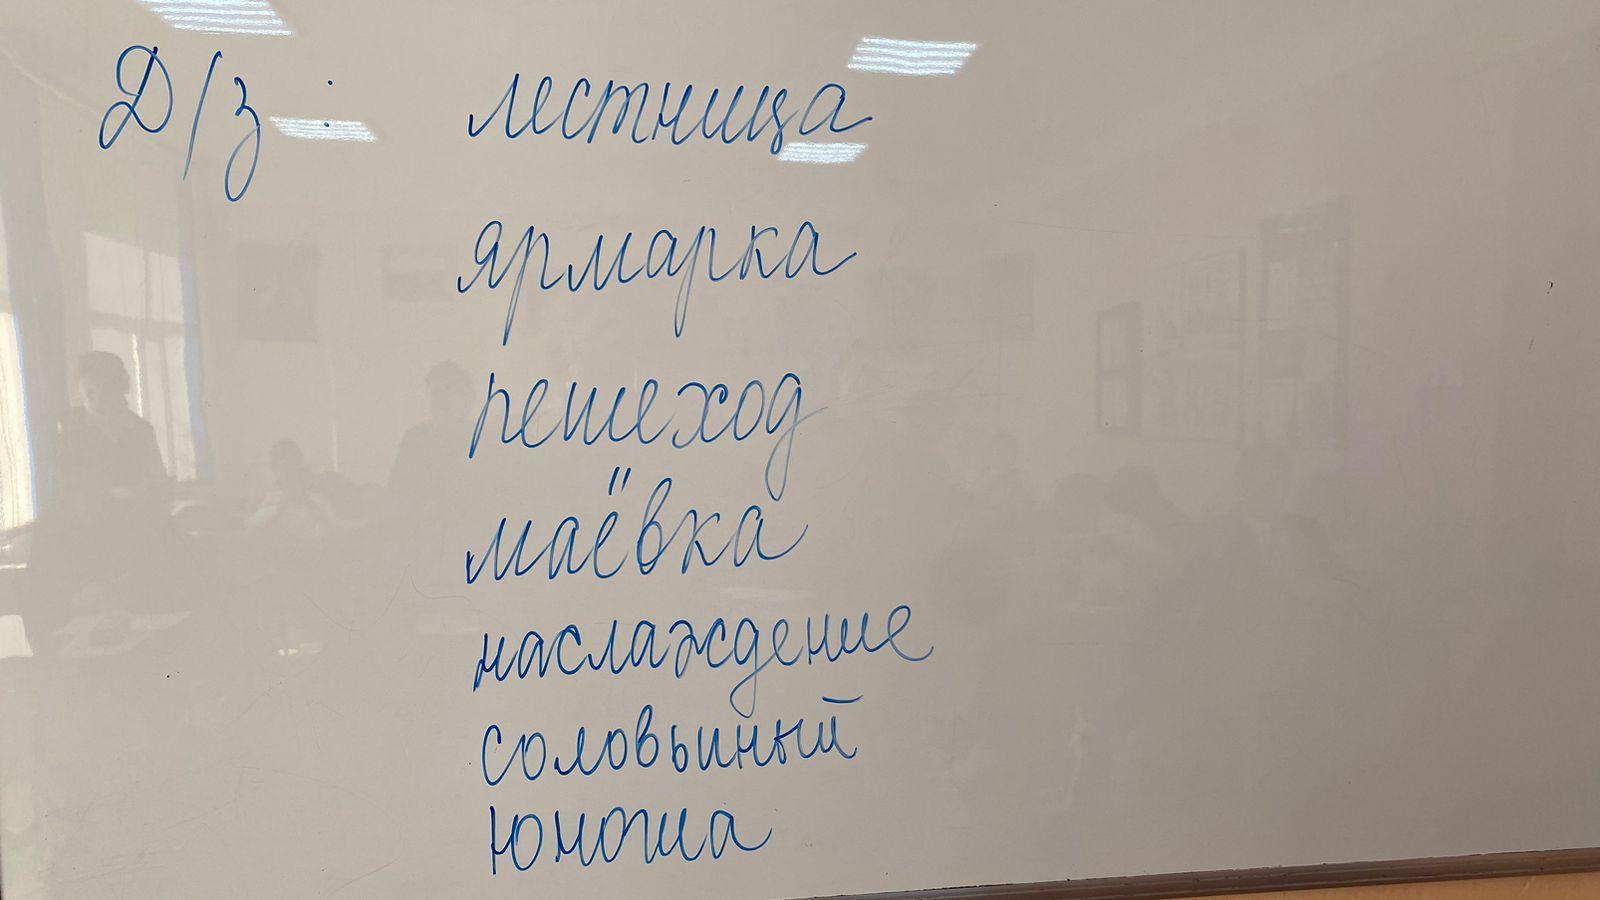 Д/з: лестница
ярмарка
пешеход
маёвка
наслаждение
соловьиный
юноша